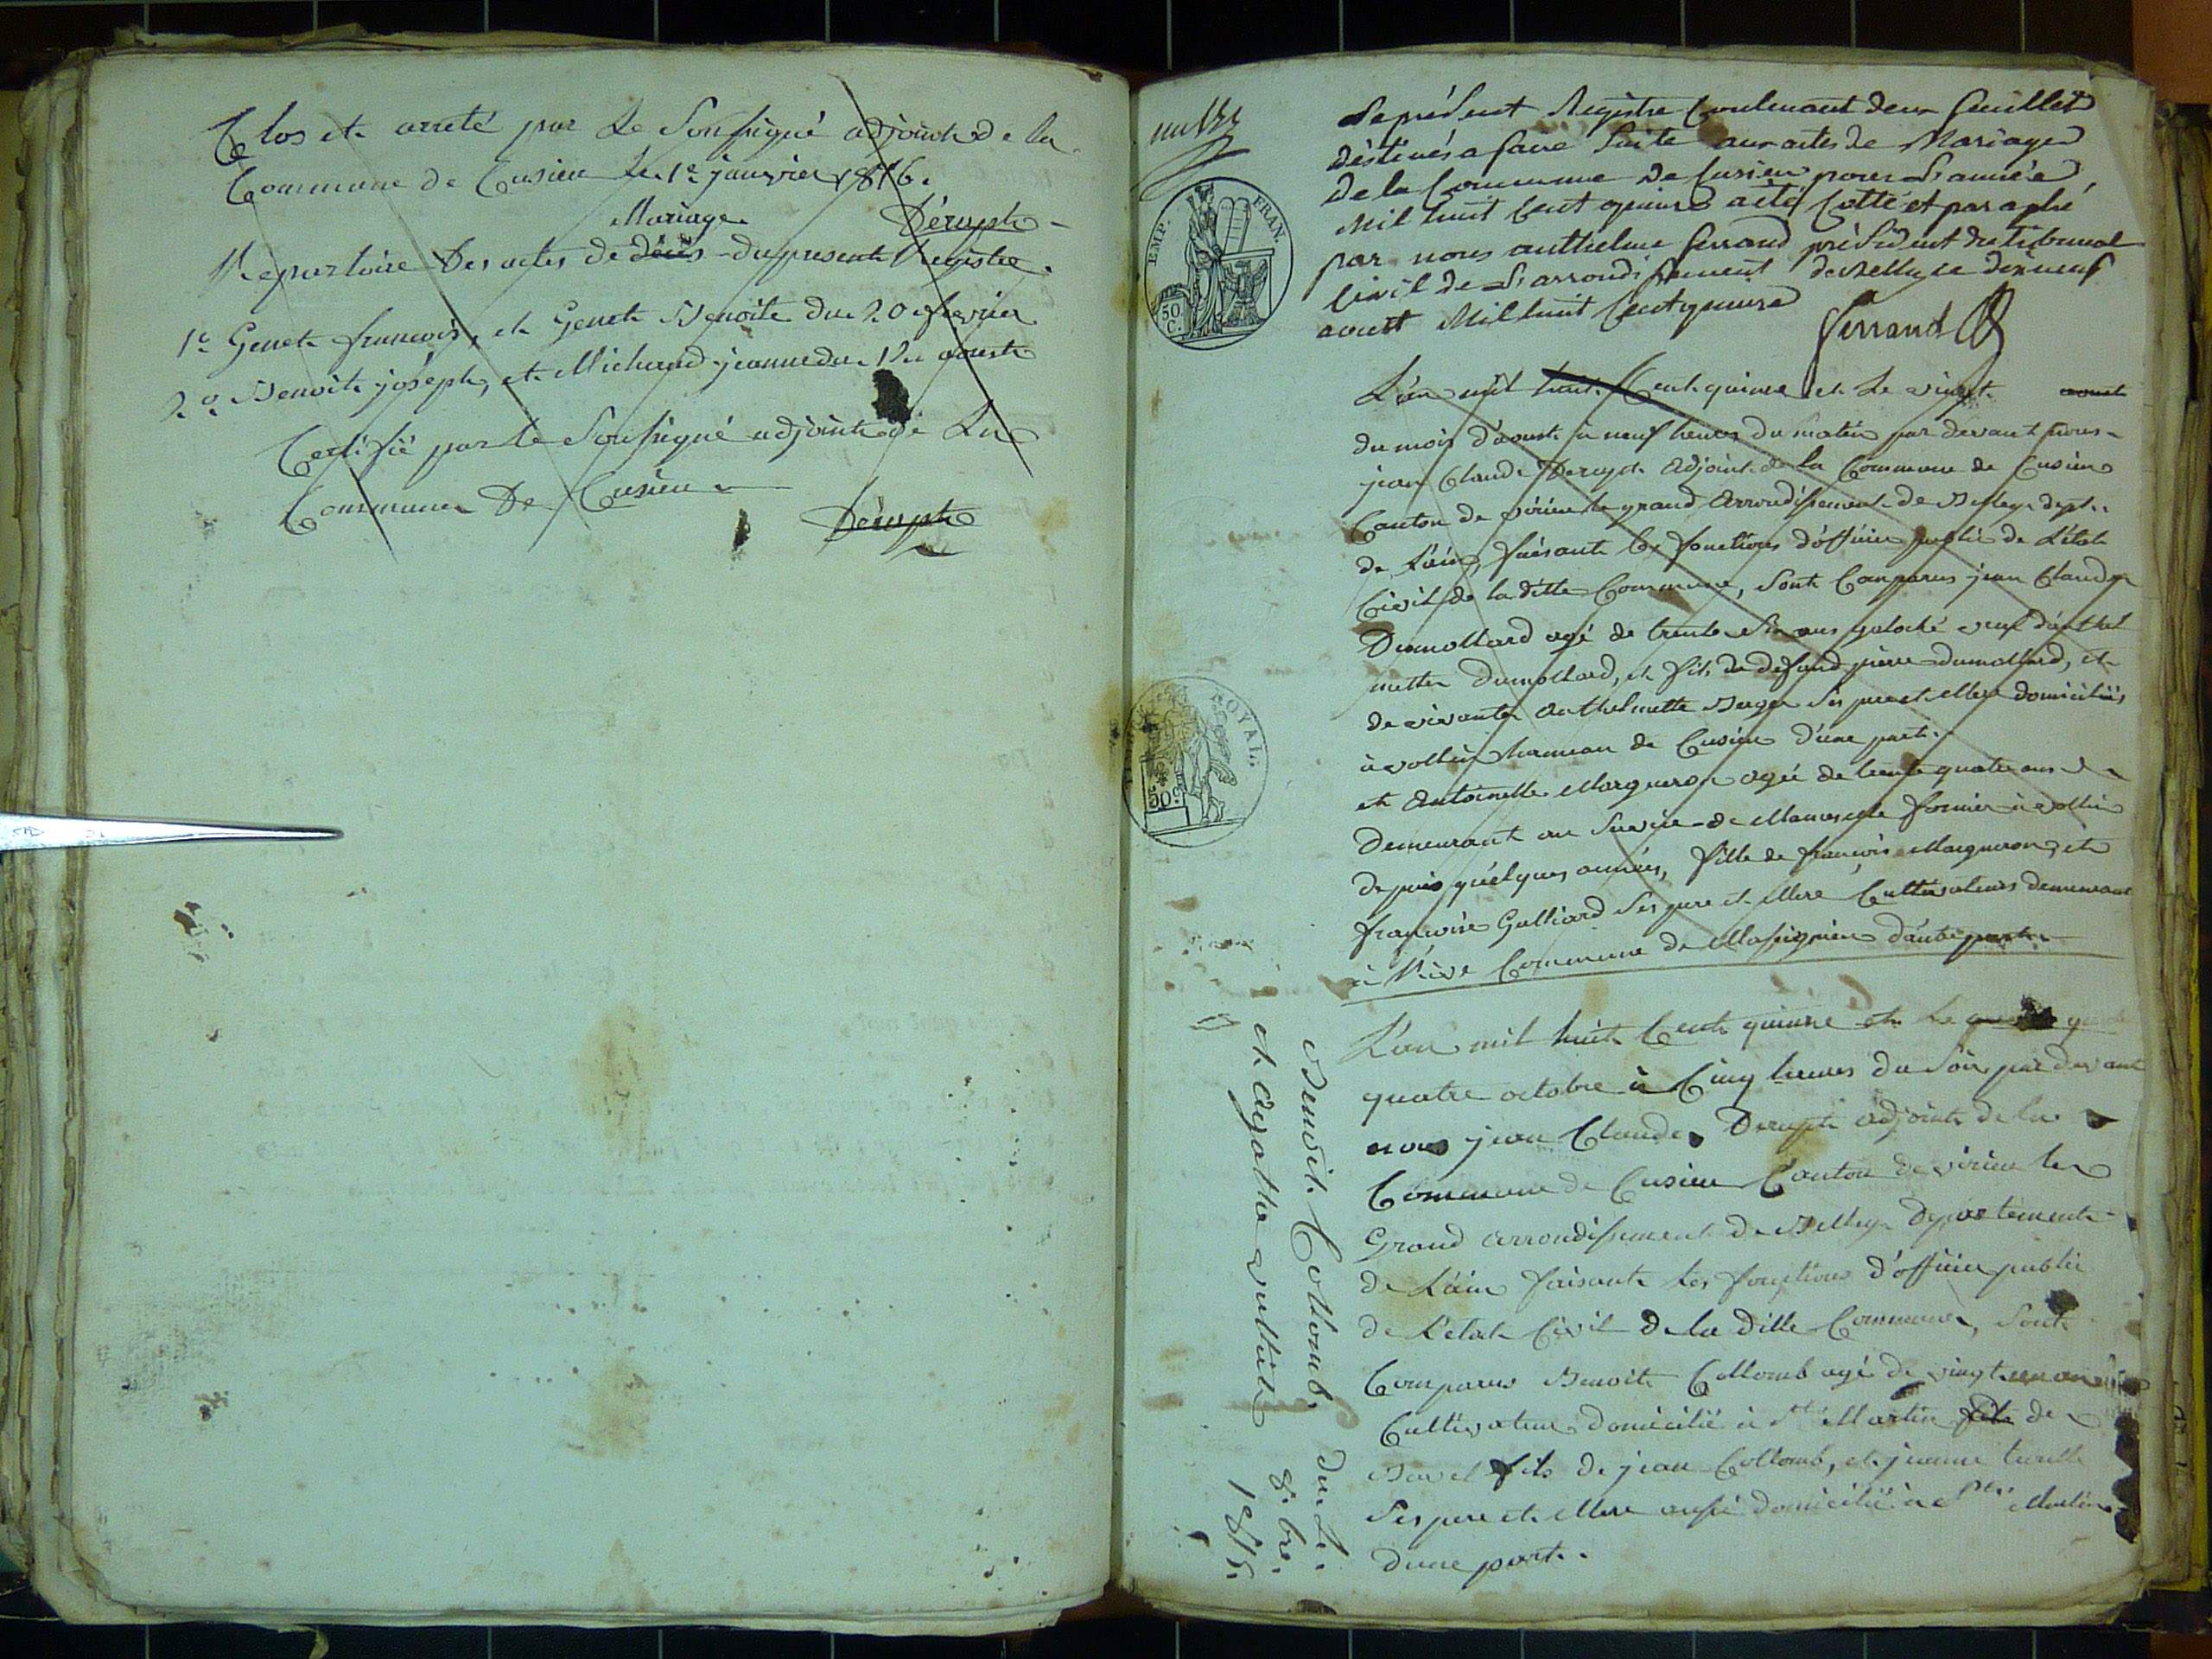 Clos et arreté par le Soussigné adjoint de la
Commune de Cusieu le 1e janvier 1816.
Mariage Dérupt
Repertoire Des actes de décés du present Registre.
1e Genet francois, et Genet Benoite du 20 fevrier
2e Benoit joseph, et Michaud jeanne du aoust
Certifié par le Soussigné adjoint de La
Commune De Cusieu
Dérupt
un
Le présent Registre Contenant deux feuillets
déstinés a faire Suite aux actes de Mariage
de la Commune de Cusieu pour L'année
Mil huit Cent quinze a été Cotté et paraphé
par nous anthelme ferrand président du Tribunal
Civil de L'arrondissement de Belley ce dixneuf
aoust Mil huit Cent quinze
ferrand
EMP. FRAN.
50 C.
L'an mil huit Cent quinze et Le vingt aoust
du mois d'aoust à neuf heures du matin par devant nous
jean Claude Derupt Adjoint de la Commune de Cusieu
Canton de virieu le grand Arrondissement de Belley dept.
de L'ain, faisant les fonctions d'officier public de L'état
Civil de la ditte Commune, Sont Comparus jean Claude
Dumollard agé de trente Six ans galoché veuf d'anthel
mette Dumollard, et fils de defund pierre dumollard, et
de vivante Anthelmette Berger Ses pere et Mere domiciliés
à vollin hameau de Cusieu d'une part.
et Antoinette Marqueron agée de trente quatre ans
Demeurant au Service de fermier à vollin
depuis quélques années, fille de françois Marqueron, et
françoise Galliard Ses pere et Mere Cultivateurs demeurant
à Commune de Massignieu d'autre part.
ROYAL
50 c.
L'an mil huit Cent quinze et Le
quatre octobre à Cinq heures du Soir par devant
nous jean Claude Derupt adjoint de la
Commune de Cusieu Canton de virieu le
Grand arrondissement de Belley Departement
de L'ain faisant les fonctions d'officier public
de L'etat Civil de la ditte Commune, Sont
Comparus Benoit Collomb agé de vingt un an
Cultivateur domicilié à St Martin de
Bavel fils de jean Collomb, et jeanne
Ses pere et Mere aussi domicilié à St Martin
d'une part.
Benoit Collomb, du 4.
et agathe 8.bre.
1815.